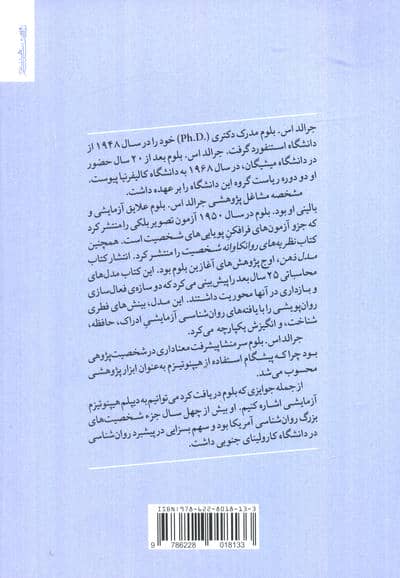 جرالد اس. بلوم مدرک دکتری (Ph.D.) خود را در سال ۱۹۴۸ از
دانشگاه استنفورد گرفت. جرالد اس. بلوم بعد از ۲۰ سال حضور
در دانشگاه میشیگان، در سال ۱۹۶۸ به دانشگاه کالیفرنیا پیوست.
او دو دوره ریاست گروه این دانشگاه را بر عهده داشت.
مشخصه مشاغل پژوهشی جرالد اس. بلوم علایق آزمایشی و
بالینی او بود. بلوم در سال ۱۹۵۰ آزمون تصویر بلکی را منتشر کرد
که جزو آزمون‌های فرافکنِ پویایی‌های شخصیت است. همچنین
کتاب نظریه‌های روانکاوانه شخصیت را منتشر کرد. انتشار کتاب
مدل ذهن، اوج پژوهش‌های آغازین بلوم بود. این کتاب مدل‌های
محاسباتی ۲۵ سال بعد را پیش‌بینی می‌کرد که دو سازه‌ی فعال‌سازی
و بازداری در آنها محوریت داشتند. این مدل، بینش‌های فطری
روان‌پویشی را با یافته‌های روان‌شناسی آزمایشیِ ادراک، حافظه،
شناخت، و انگیزش یکپارچه می‌کرد.
جرالد اس. بلوم سرمنشا پیشرفت معناداری در شخصیت‌پژوهی
بود چرا که پیشگام استفاده از هیپنوتیزم به‌عنوان ابزار پژوهشی
محسوب می‌شد.
از جمله جوایزی که بلوم دریافت کرد می‌توانیم به دیپلم هیپنوتیزم
آزمایشی اشاره کنیم. او بیش از چهل سال جزء شخصیت‌های
بزرگ روان‌شناسی آمریکا بود و سهم بسزایی در پیشبرد روان‌شناسی
در دانشگاه کارولینای جنوبی داشت.
ISBN: 978-622-8018-13-3
9 786228 018133